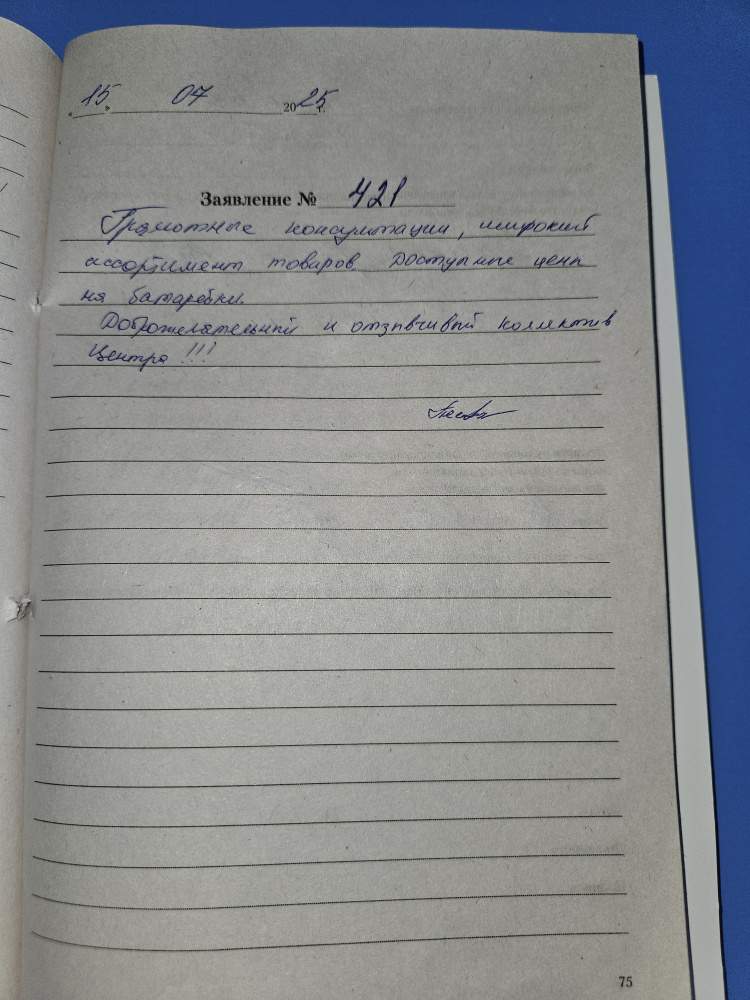 "15" 07 2025 г.
Заявление № 421
Грамотные консультации, широкий
ассортимент товаров. Доступные цены
на батарейки.
Доброжелательный и отзывчивый коллектив
Центра!!!
75